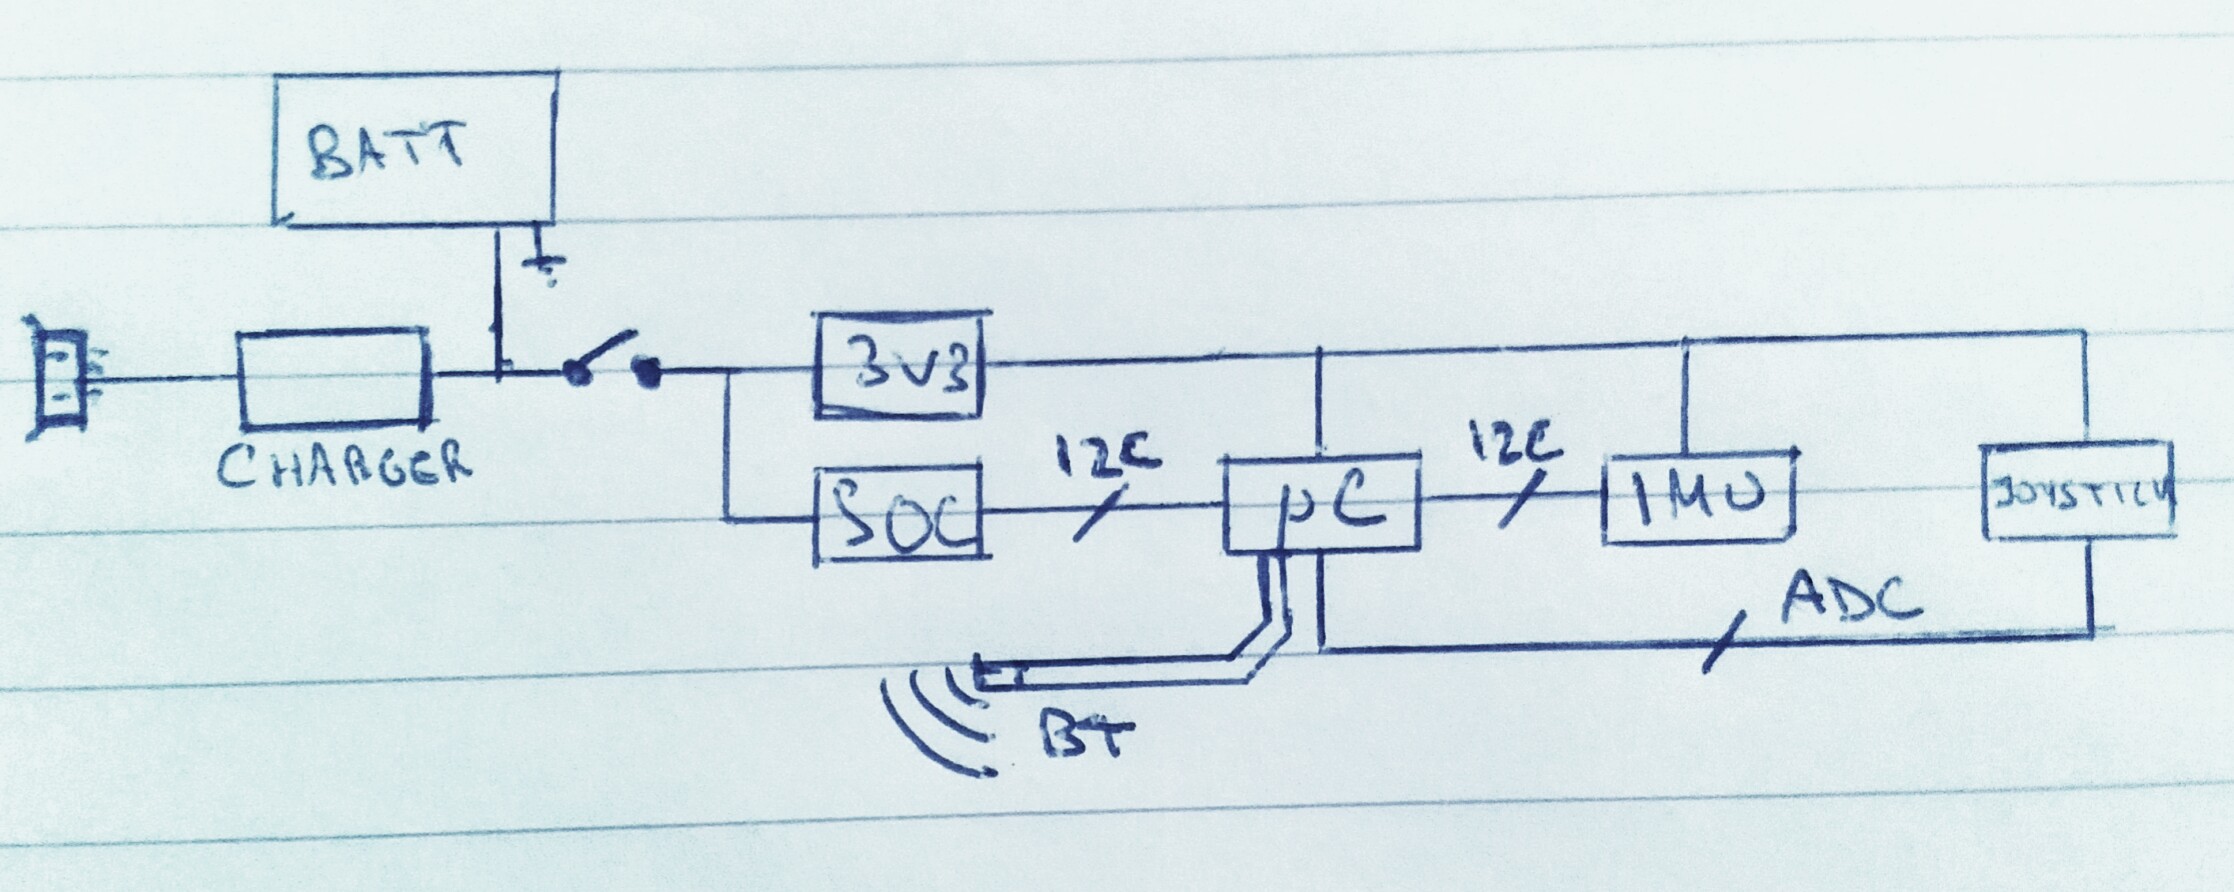 BATT
3V3
CHARGER
SOC
I2C
µC
I2C
IMU
JOYSTICK
ADC
BT